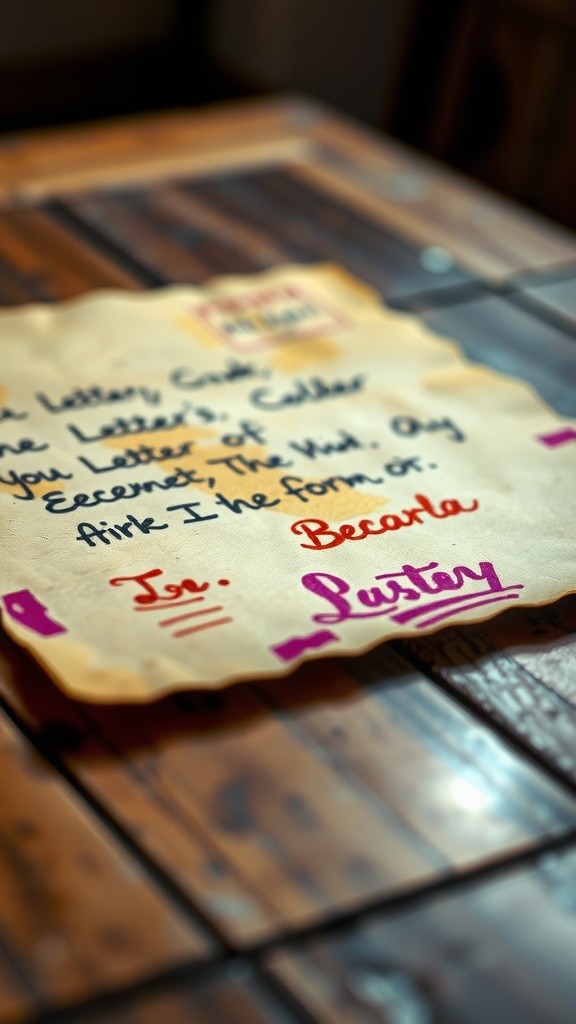 Letter,
ne Letter's. Colder
you Letter of
Eecernet, The Hist. Ay
Airk I he form or.
Becarla
Ire.
Lustey